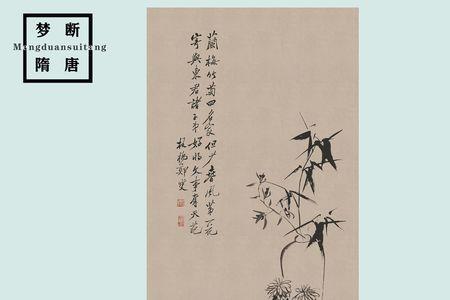 梦断
Mengduansuitang
隋唐
蘭梅竹菊四名家但少春風第一花
寄與東君諸子弟好將文事奪天葩
板橋鄭燮